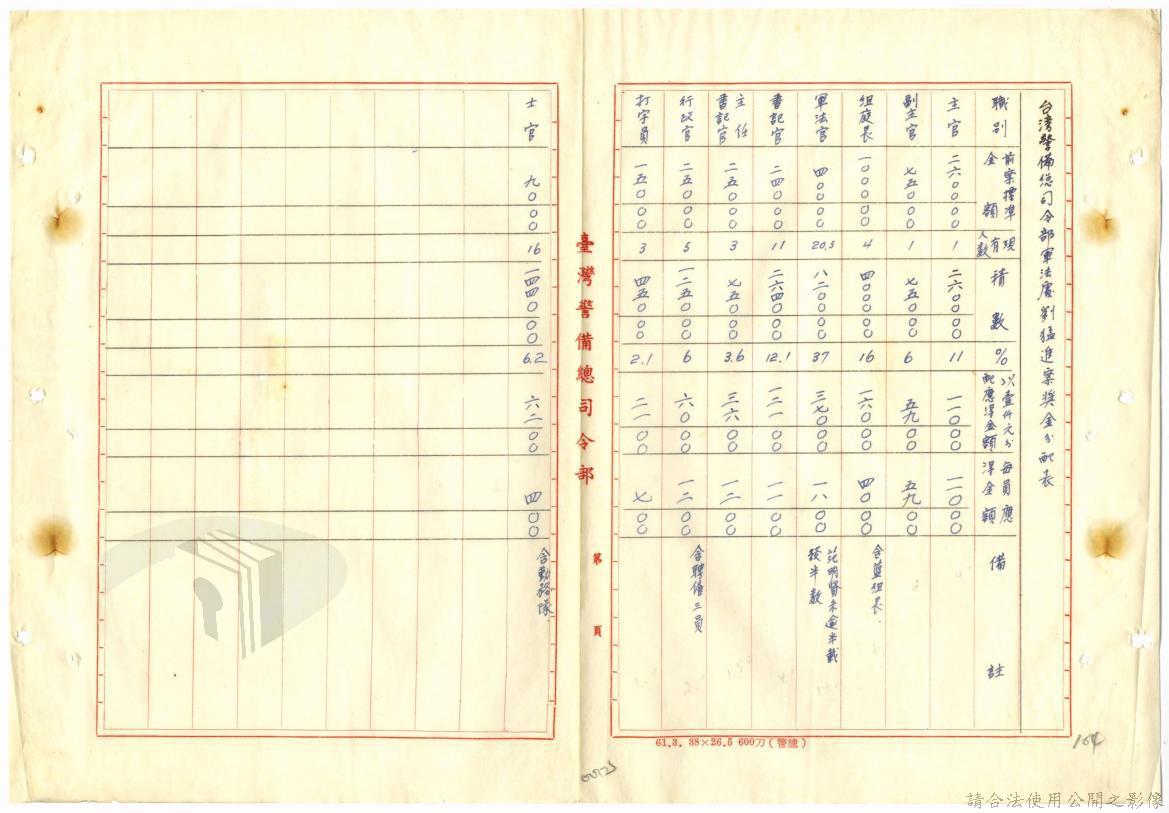 台灣警備總司令部軍法處劉猛進案獎金分配表
職別 前案標準金額 現有人數 積數 % 以壹仟元分配應得金額 每員應得金額 備註
主官 二六〇〇〇 1 二六〇〇〇 11 一一〇〇〇 一一〇〇〇
副主官 七五〇〇〇 1 七五〇〇〇 6 五九〇〇 五九〇〇
組庭長 一〇〇〇〇〇 4 四〇〇〇〇 16 一六〇〇〇 四〇〇〇 含藍組長
軍法官 四〇〇〇 20.5 八二〇〇〇 37 三七〇〇〇 一八〇〇 范明賢未逾半載發半數
書記官 二四〇〇〇 11 二六四〇〇〇 12.1 一二一〇〇 一一〇〇
主任書記官 二五〇〇〇 3 七五〇〇〇 3.6 三六〇〇 一二〇〇
行政官 二五〇〇〇 5 一二五〇〇〇 6 六〇〇〇 一二〇〇 含聘僱三員
打字員 一五〇〇〇 3 四五〇〇〇 2.1 二一〇〇 七〇〇
士官 九〇〇〇 16 一四四〇〇〇 6.2 六二〇〇 四〇〇 含勤務隊
臺灣警備總司令部
第 頁
61.3. 38×26.5 600刀(警總)
164
請合法使用公開之影像